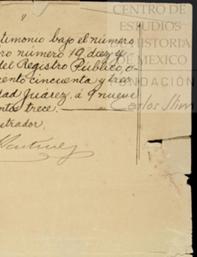 timonio bajo el número
ro número 19, diez y
del Registro Público, c
ento cincuenta y tres
dad Juárez, á 9 nueve
ntos trece.
strador.
CENTRO DE
ESTUDIOS
HISTORIA
DE MEXICO
FUNDACIÓN
Carlos Slim